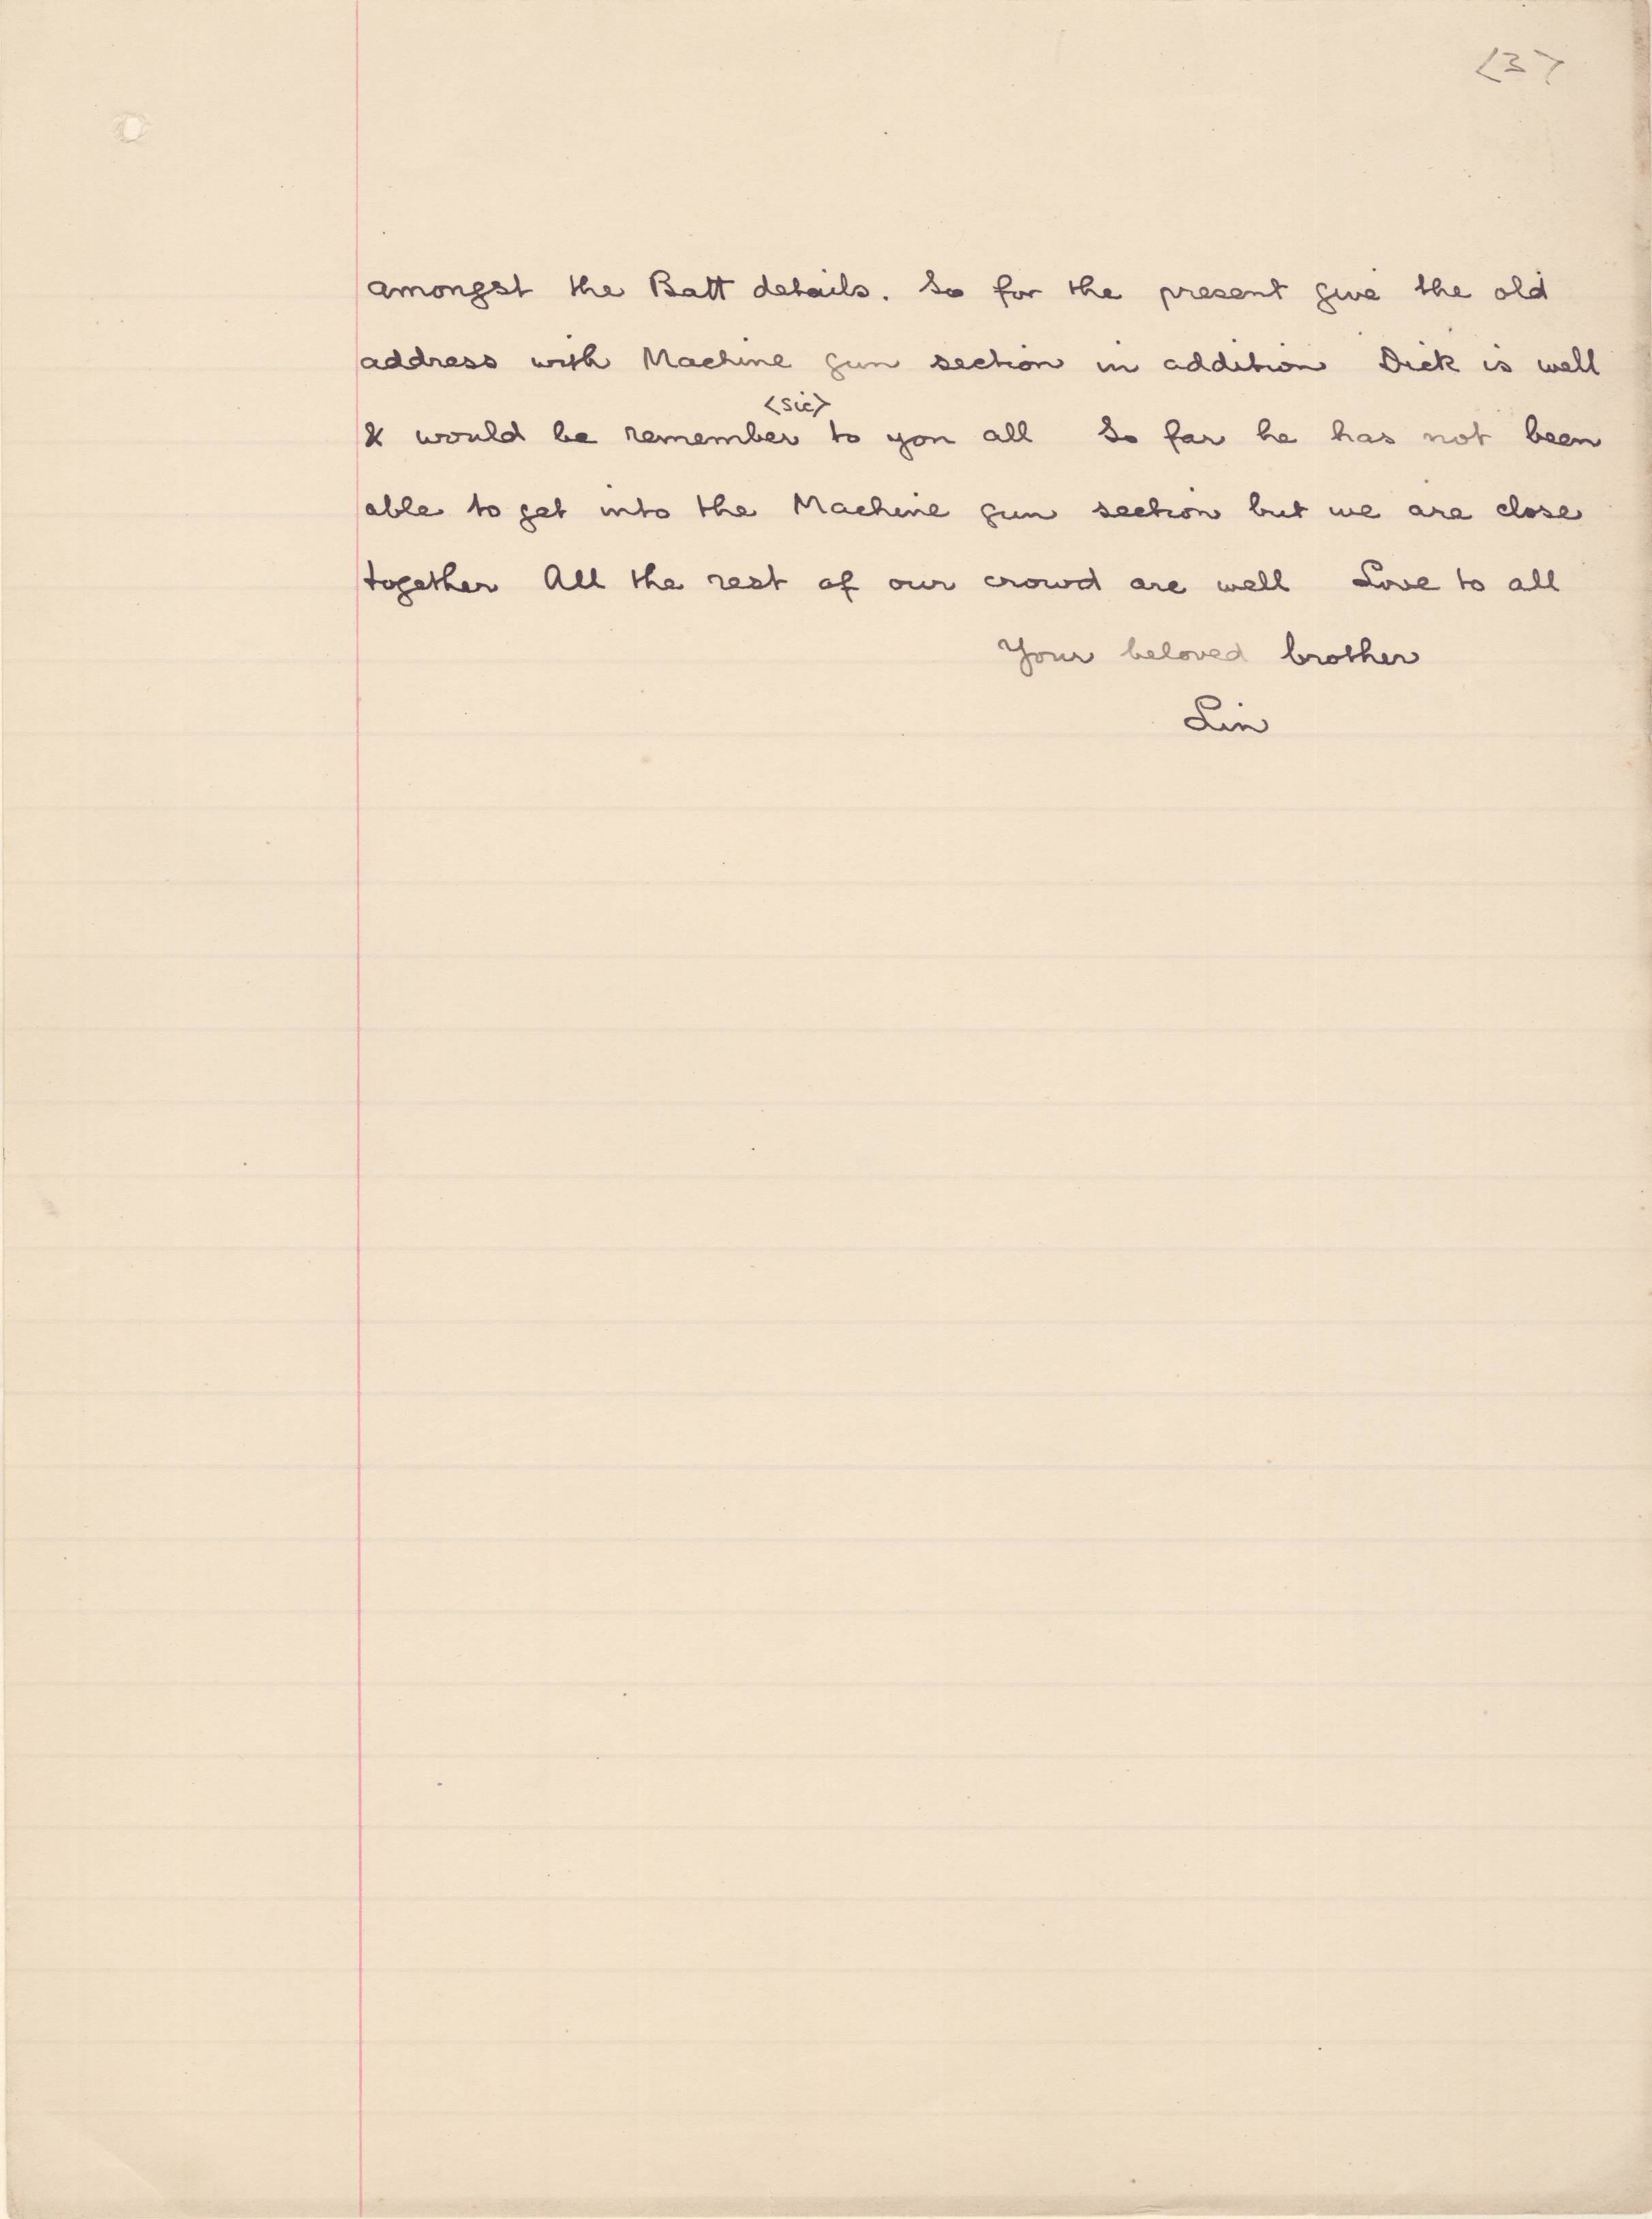 <3>
amongst the Batt details. So for the present give the old
address with Machine gun section in addition Dick is well
<sic>
& would be remember to you all So far he has not been
able to get into the Machine gun section but we are close
together All the rest of our crowd are well Love to all
Your beloved brother
Lin